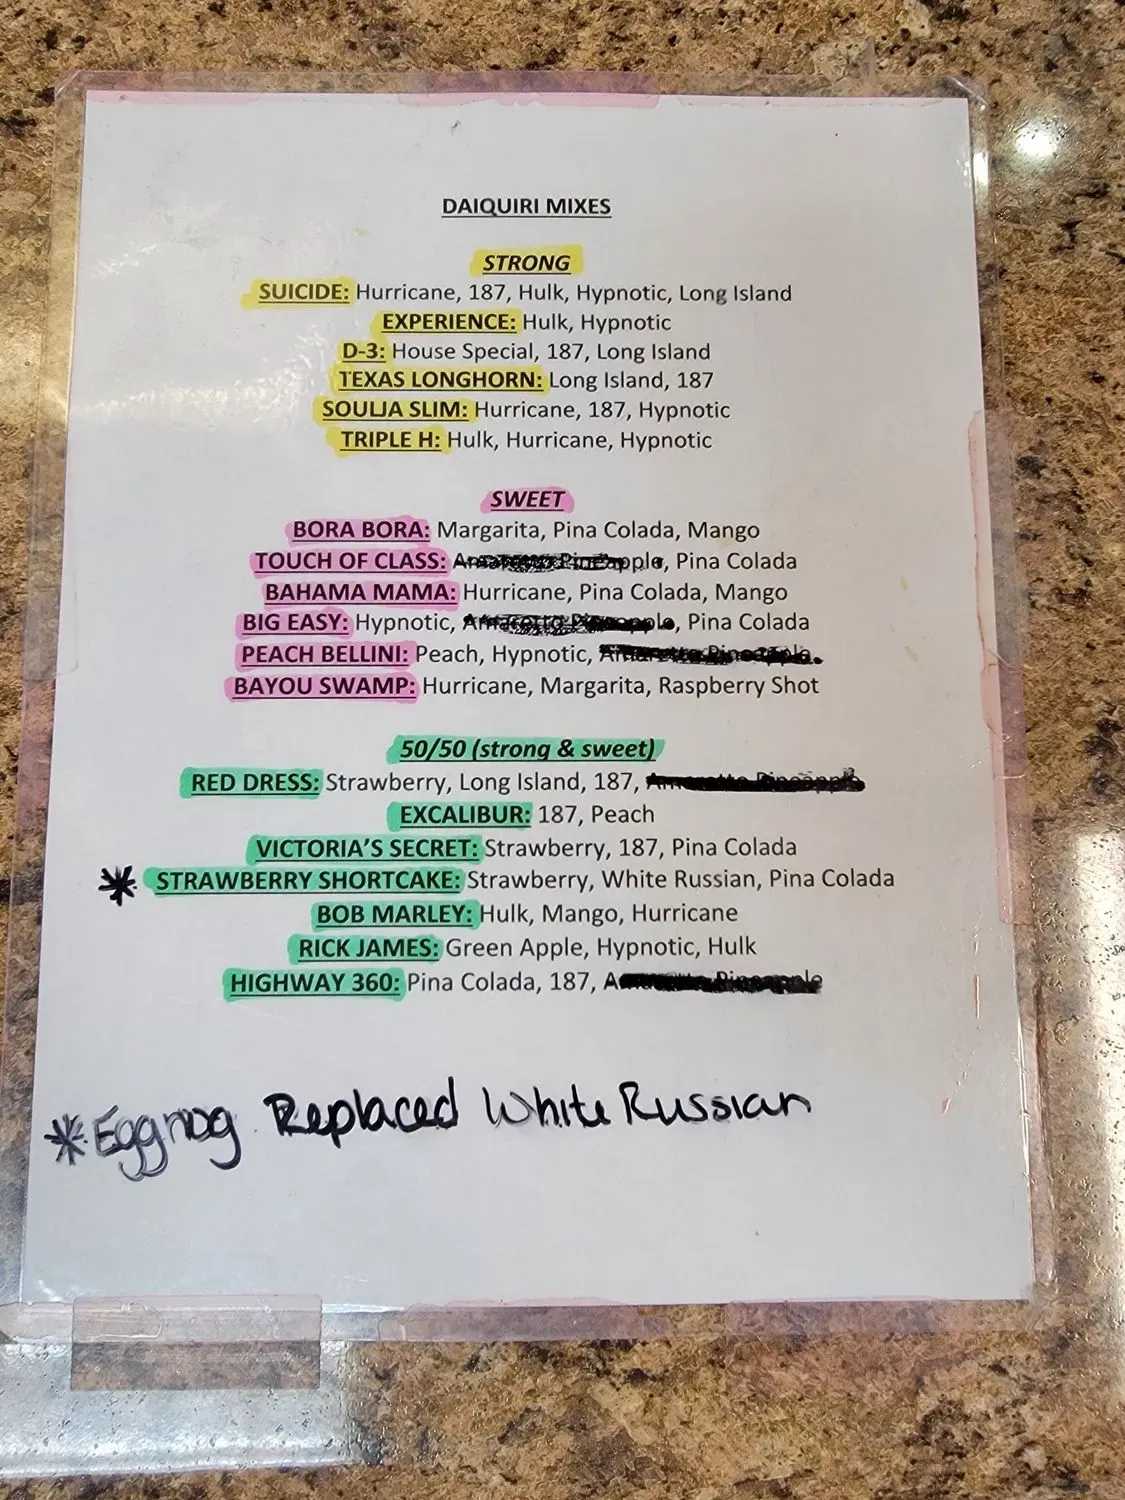 DAIQUIRI MIXES
STRONG
SUICIDE: Hurricane, 187, Hulk, Hypnotic, Long Island
EXPERIENCE: Hulk, Hypnotic
D-3: House Special, 187, Long Island
TEXAS LONGHORN: Long Island, 187
SOULJA SLIM: Hurricane, 187, Hypnotic
TRIPLE H: Hulk, Hurricane, Hypnotic
SWEET
BORA BORA: Margarita, Pina Colada, Mango
TOUCH OF CLASS: Amaretto Pineapple, Pina Colada
BAHAMA MAMA: Hurricane, Pina Colada, Mango
BIG EASY: Hypnotic, Amaretto Pineapple, Pina Colada
PEACH BELLINI: Peach, Hypnotic, Amaretto Pineapple
BAYOU SWAMP: Hurricane, Margarita, Raspberry Shot
50/50 (strong & sweet)
RED DRESS: Strawberry, Long Island, 187, Amaretto Pineapple
EXCALIBUR: 187, Peach
VICTORIA'S SECRET: Strawberry, 187, Pina Colada
* STRAWBERRY SHORTCAKE: Strawberry, White Russian, Pina Colada
BOB MARLEY: Hulk, Mango, Hurricane
RICK JAMES: Green Apple, Hypnotic, Hulk
HIGHWAY 360: Pina Colada, 187, Amaretto Pineapple
* Eggnog Replaced White Russian